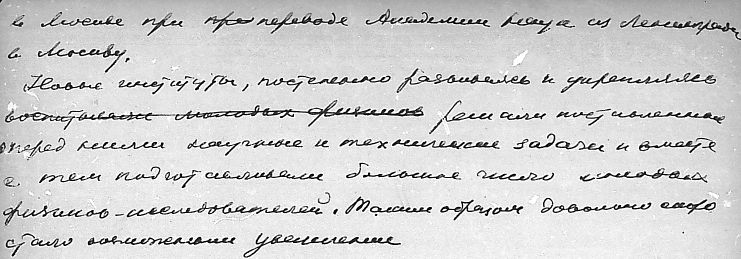 в Москве при пр переводе Академии наук из Ленинграда
в Москву.
Новые институты, постепенно развиваясь и укрепляясь
воспитывали молодых физиков решали поставленные
перед ними научные и технические задачи и вместе
с тем подготавливали большое число молодых
физиков-исследователей. Таким образом довольно скоро
стало возможным увеличение